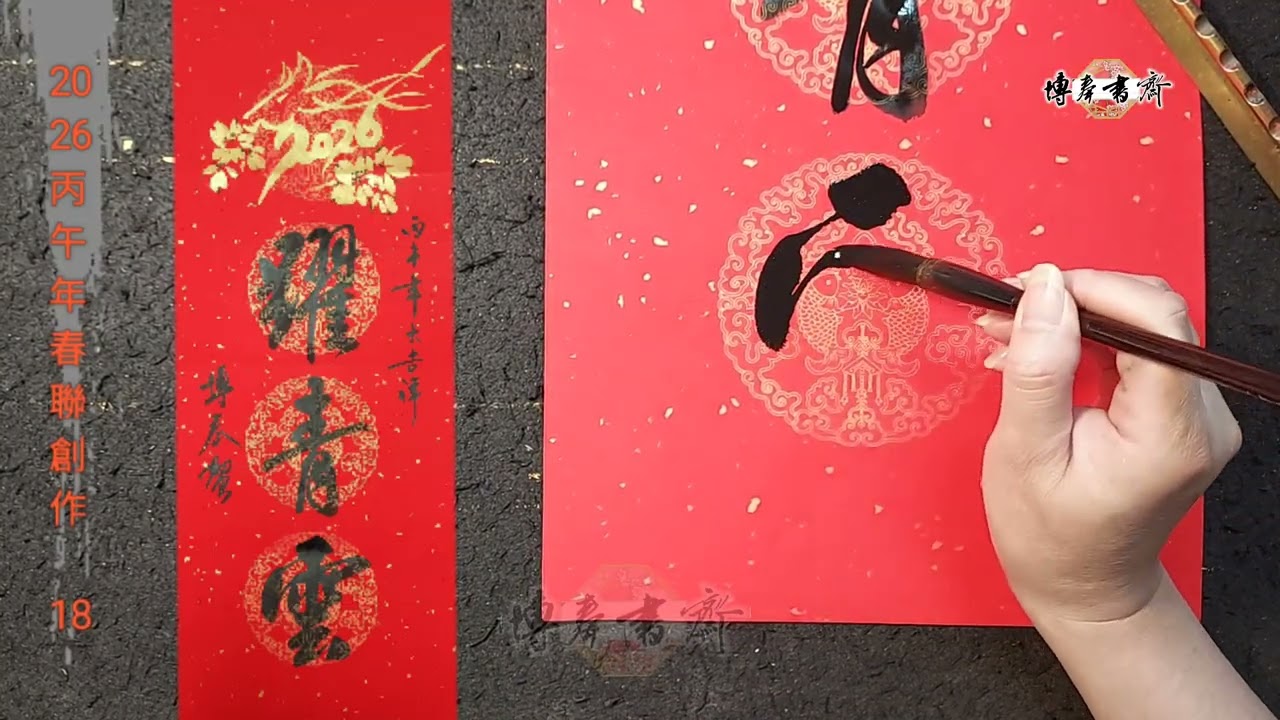 2026丙午年春聯創作 18
2026
躍青雲
丙午年大吉祥
青
博春書齋
博春書齋